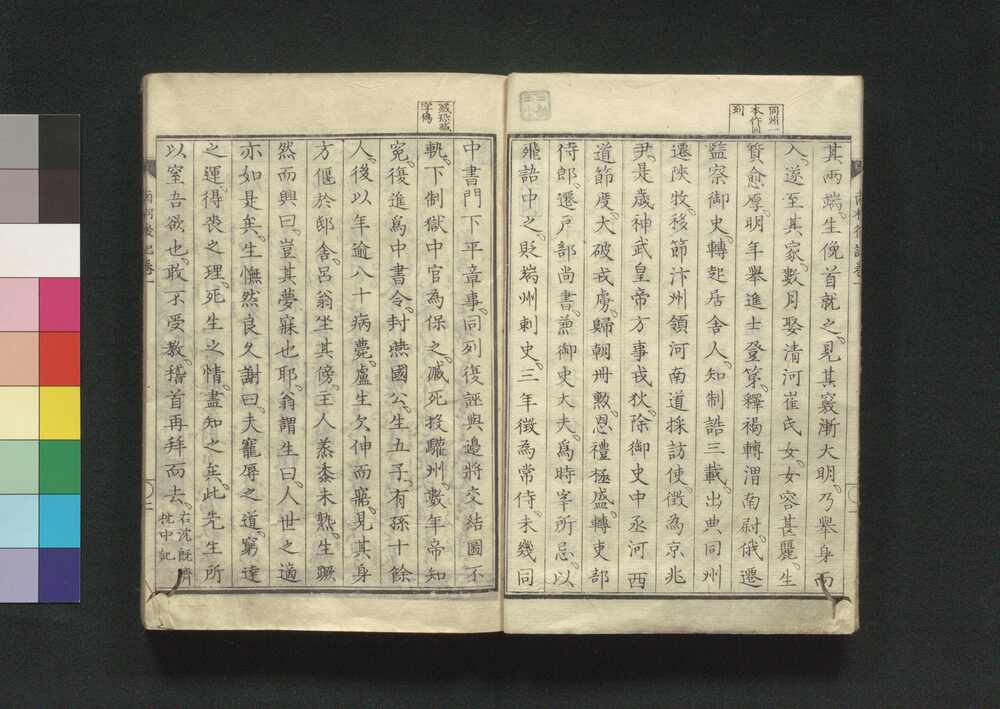 同州一
本作同
到
其兩端。生俛首就之。見其竅漸大明。乃舉身而
入。遂至其家。數月娶清河崔氏女。女容甚麗。生
資愈厚。明年舉進士登第。釋褐轉渭南尉。俄遷
監察御史。轉起居舍人。知制誥三載。出典同州
遷陝牧。移節汴州領河南道採訪使。徵為京兆
尹。是歲神武皇帝方事戎狄。除御史中丞河西
道節度。大破戎虜。歸朝冊勲。恩禮極盛。轉吏部
侍郎。遷戸部尚書。兼御史大夫。為時宰所忌。以
飛語中之。貶端州刺史。三年徵為常侍。未幾同
臧
中書門下平章事。同列復誣與邉將交結圖不
軌。下制獄中官為保之。減死投驩州。數年帝知
冤。復進為中書令。封燕國公。生五子。有孫十餘
人。後以年逾八十病薨。盧生欠伸而寤。見其身
方偃於邸舍。呂翁坐其傍。主人蒸黍未熟。生蹶
然而興曰。豈其夢寐也耶。翁謂生曰。人世之適
亦如是矣。生憮然良久謝曰。夫寵辱之道。窮達
之運。得喪之理。死生之情。盡知之矣。此先生所
以窒吾欲也。敢不受教。稽首再拜而去。
右沈既濟
枕中記